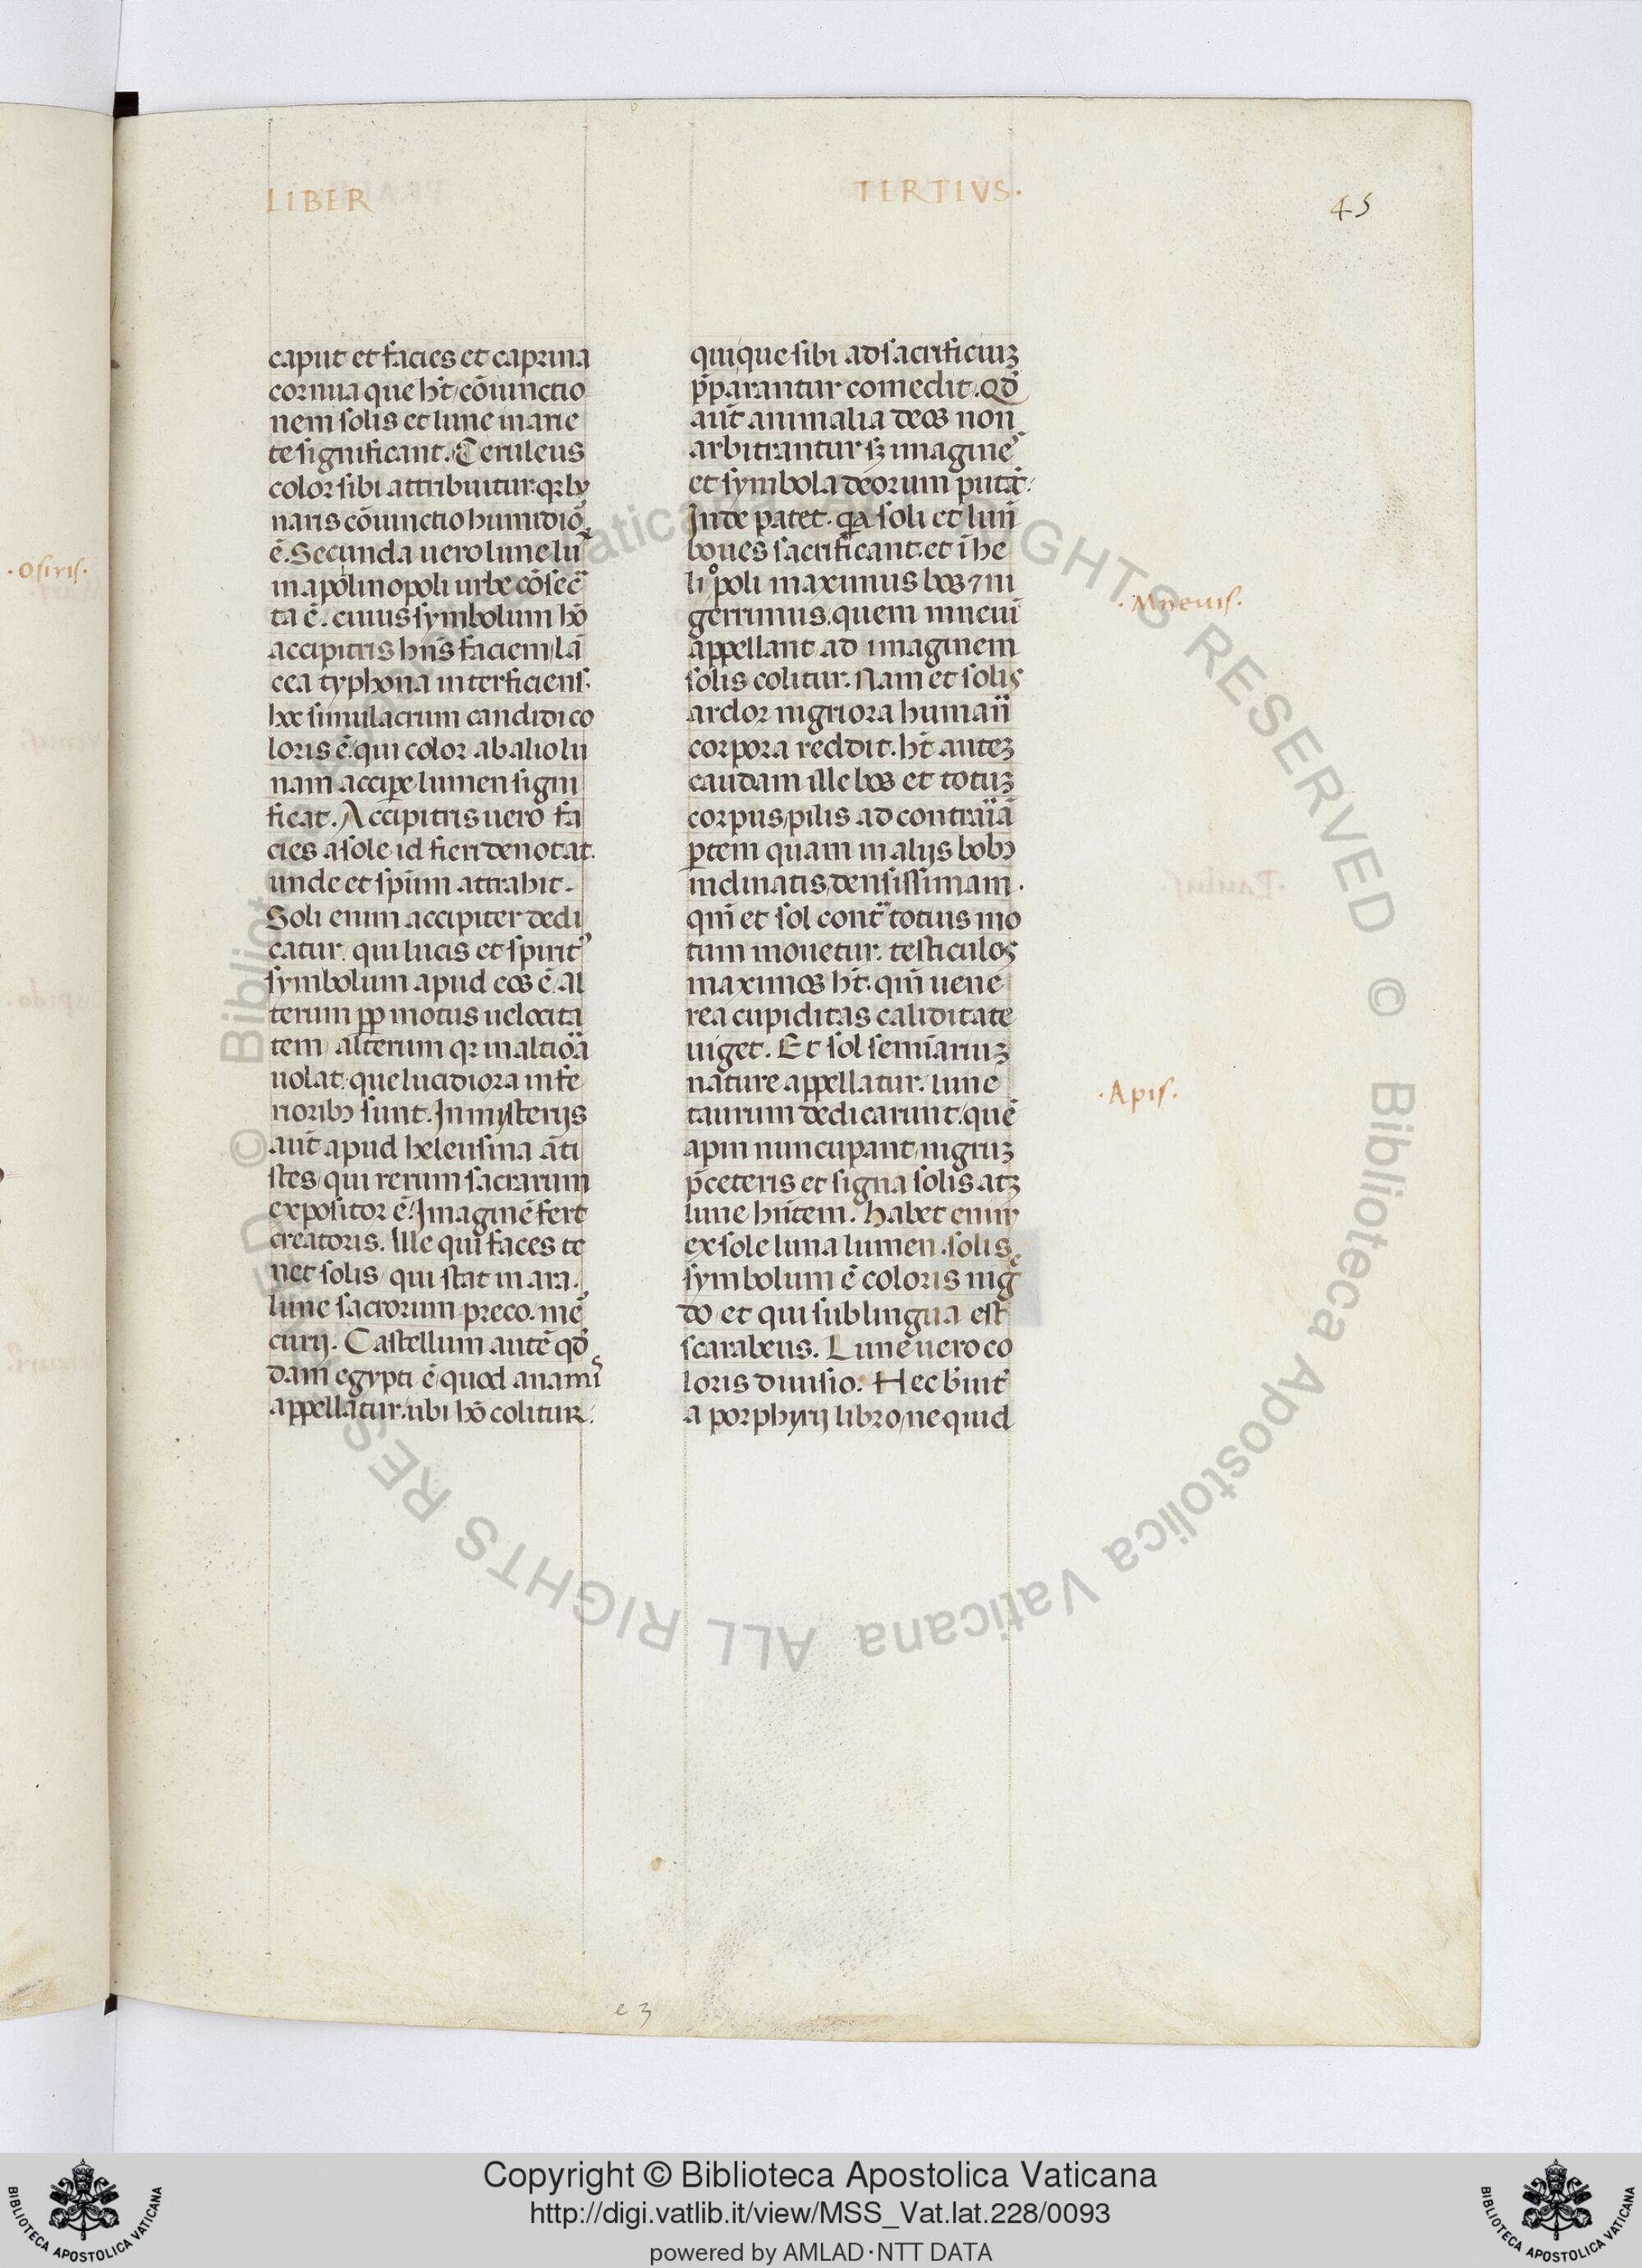 LIBER
TERTIVS.
45
caput et facies et caprina
cornua que hn̄t/cōiunctio
nem solis et lune in arie
te significant. Ceruleus
color sibi attribuitur. qꝛ lu
naris cōiunctio humidioꝛ̄
ē. Secunda uero lune lux
in apolinopoli urbe cōsec̄
ta ē. cuius symbolum hō
accipitris hn̄s faciem/lā
cea typhona interficiens.
hoc simulacrum candidi co
loris ē. qui color ab alio lu
nam accipe lumen signi
ficat. Accipitris uero fa
cies a sole id fieri denotat.
unde et spūm attrahit.
Soli enim accipiter dedi
catur. qui lucis et spirit᾽
symbolum apud eos ē. Al
terum ꝓp motus uelocita
tem/alterum qꝛ in altiōa
uolat. que lucidiora infe
rioribꝫ sunt. In mysterijs
aut̄ apud heleusina āti
stes/qui rerum sacrarum
expositor ē. Imaginē fert
creatoris. Ille qui faces te
net solis/qui stat in ara.
lune sacrorum preco. mer̄
curij. Castellum autē qd̄
dam egypti ē/quod anamis
appellatur. ubi hō colitur.
quique sibi ad sacrificiuꝫ
p̄parantur comedit. Qd̄
aut̄ animalia deos non
arbitrantur sꝫ imagines
et symbola deorum putāt.
Inde patet. qꝛ a soli et lun̄
boues sacrificant. et ī he
liopoli maximus bos ⁊ ni
gerrimus. quem mneui
appellant/ad imaginem
solis colitur. Nam et solis
ardor nigriora humaīi
corpora reddit. hn̄t auteꝫ
caudam ille bos et totuꝫ
corpus/pilis ad contrar̄iā
ꝑtem quam in alijs bobꝫ
inclinatis/densissimam.
qm̄ et sol cont̄ totius mo
tum mouetur. testiculos
maximos ht̄. qm̄ uene
rea cupiditas caliditate
uiget. Et sol semīariuꝫ
nature appellatur. lune
taurum dedicarunt. quē
apin nuncupant/nigruꝫ
p̄ceteris et signa solis atꝫ
lune hn̄tem. habet enim
ex sole luna lumen. solis
symbolum ē coloris nigre
do et qui sub lingua est
scarabeus. Lune uero co
loris diuisio. Hec b̄uit᾽
a porphyrij libro/ne quid
·Mneuis.
·Apis.
·Osiris.
e 3
© Biblioteca Apostolica Vaticana ALL RIGHTS RESERVED © Biblioteca Apostolica Vaticana ALL RIGHTS RESERVED
BIBLIOTECA APOSTOLICA VATICANA
Copyright © Biblioteca Apostolica Vaticana
http://digi.vatlib.it/view/MSS_Vat.lat.228/0093
powered by AMLAD·NTT DATA
BIBLIOTECA APOSTOLICA VATICANA